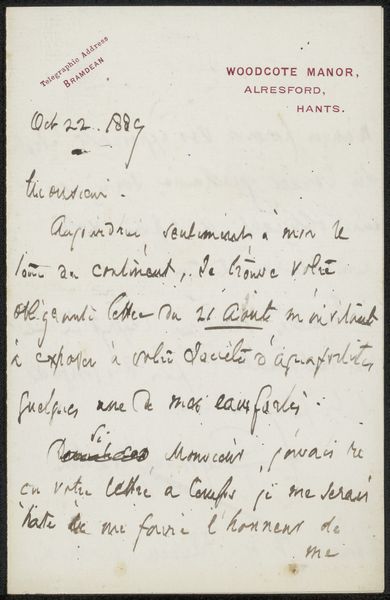 Telegraphic Address
BRAMDEAN
WOODCOTE MANOR,
ALRESFORD,
HANTS.
Oct 22. 1889
Monsieur.
Aujourdhui, seulement à mon re
tour du continent, Je trouve votre
obligeante lettre du 21 Août m'invitant
à exposer à votre Société d'aquafortistes
quelques une de mes eauxfortes.
Si Monsieur, j'avais re
cu votre lettre a temps je me serais
hâté de me faire l'honneur de
me